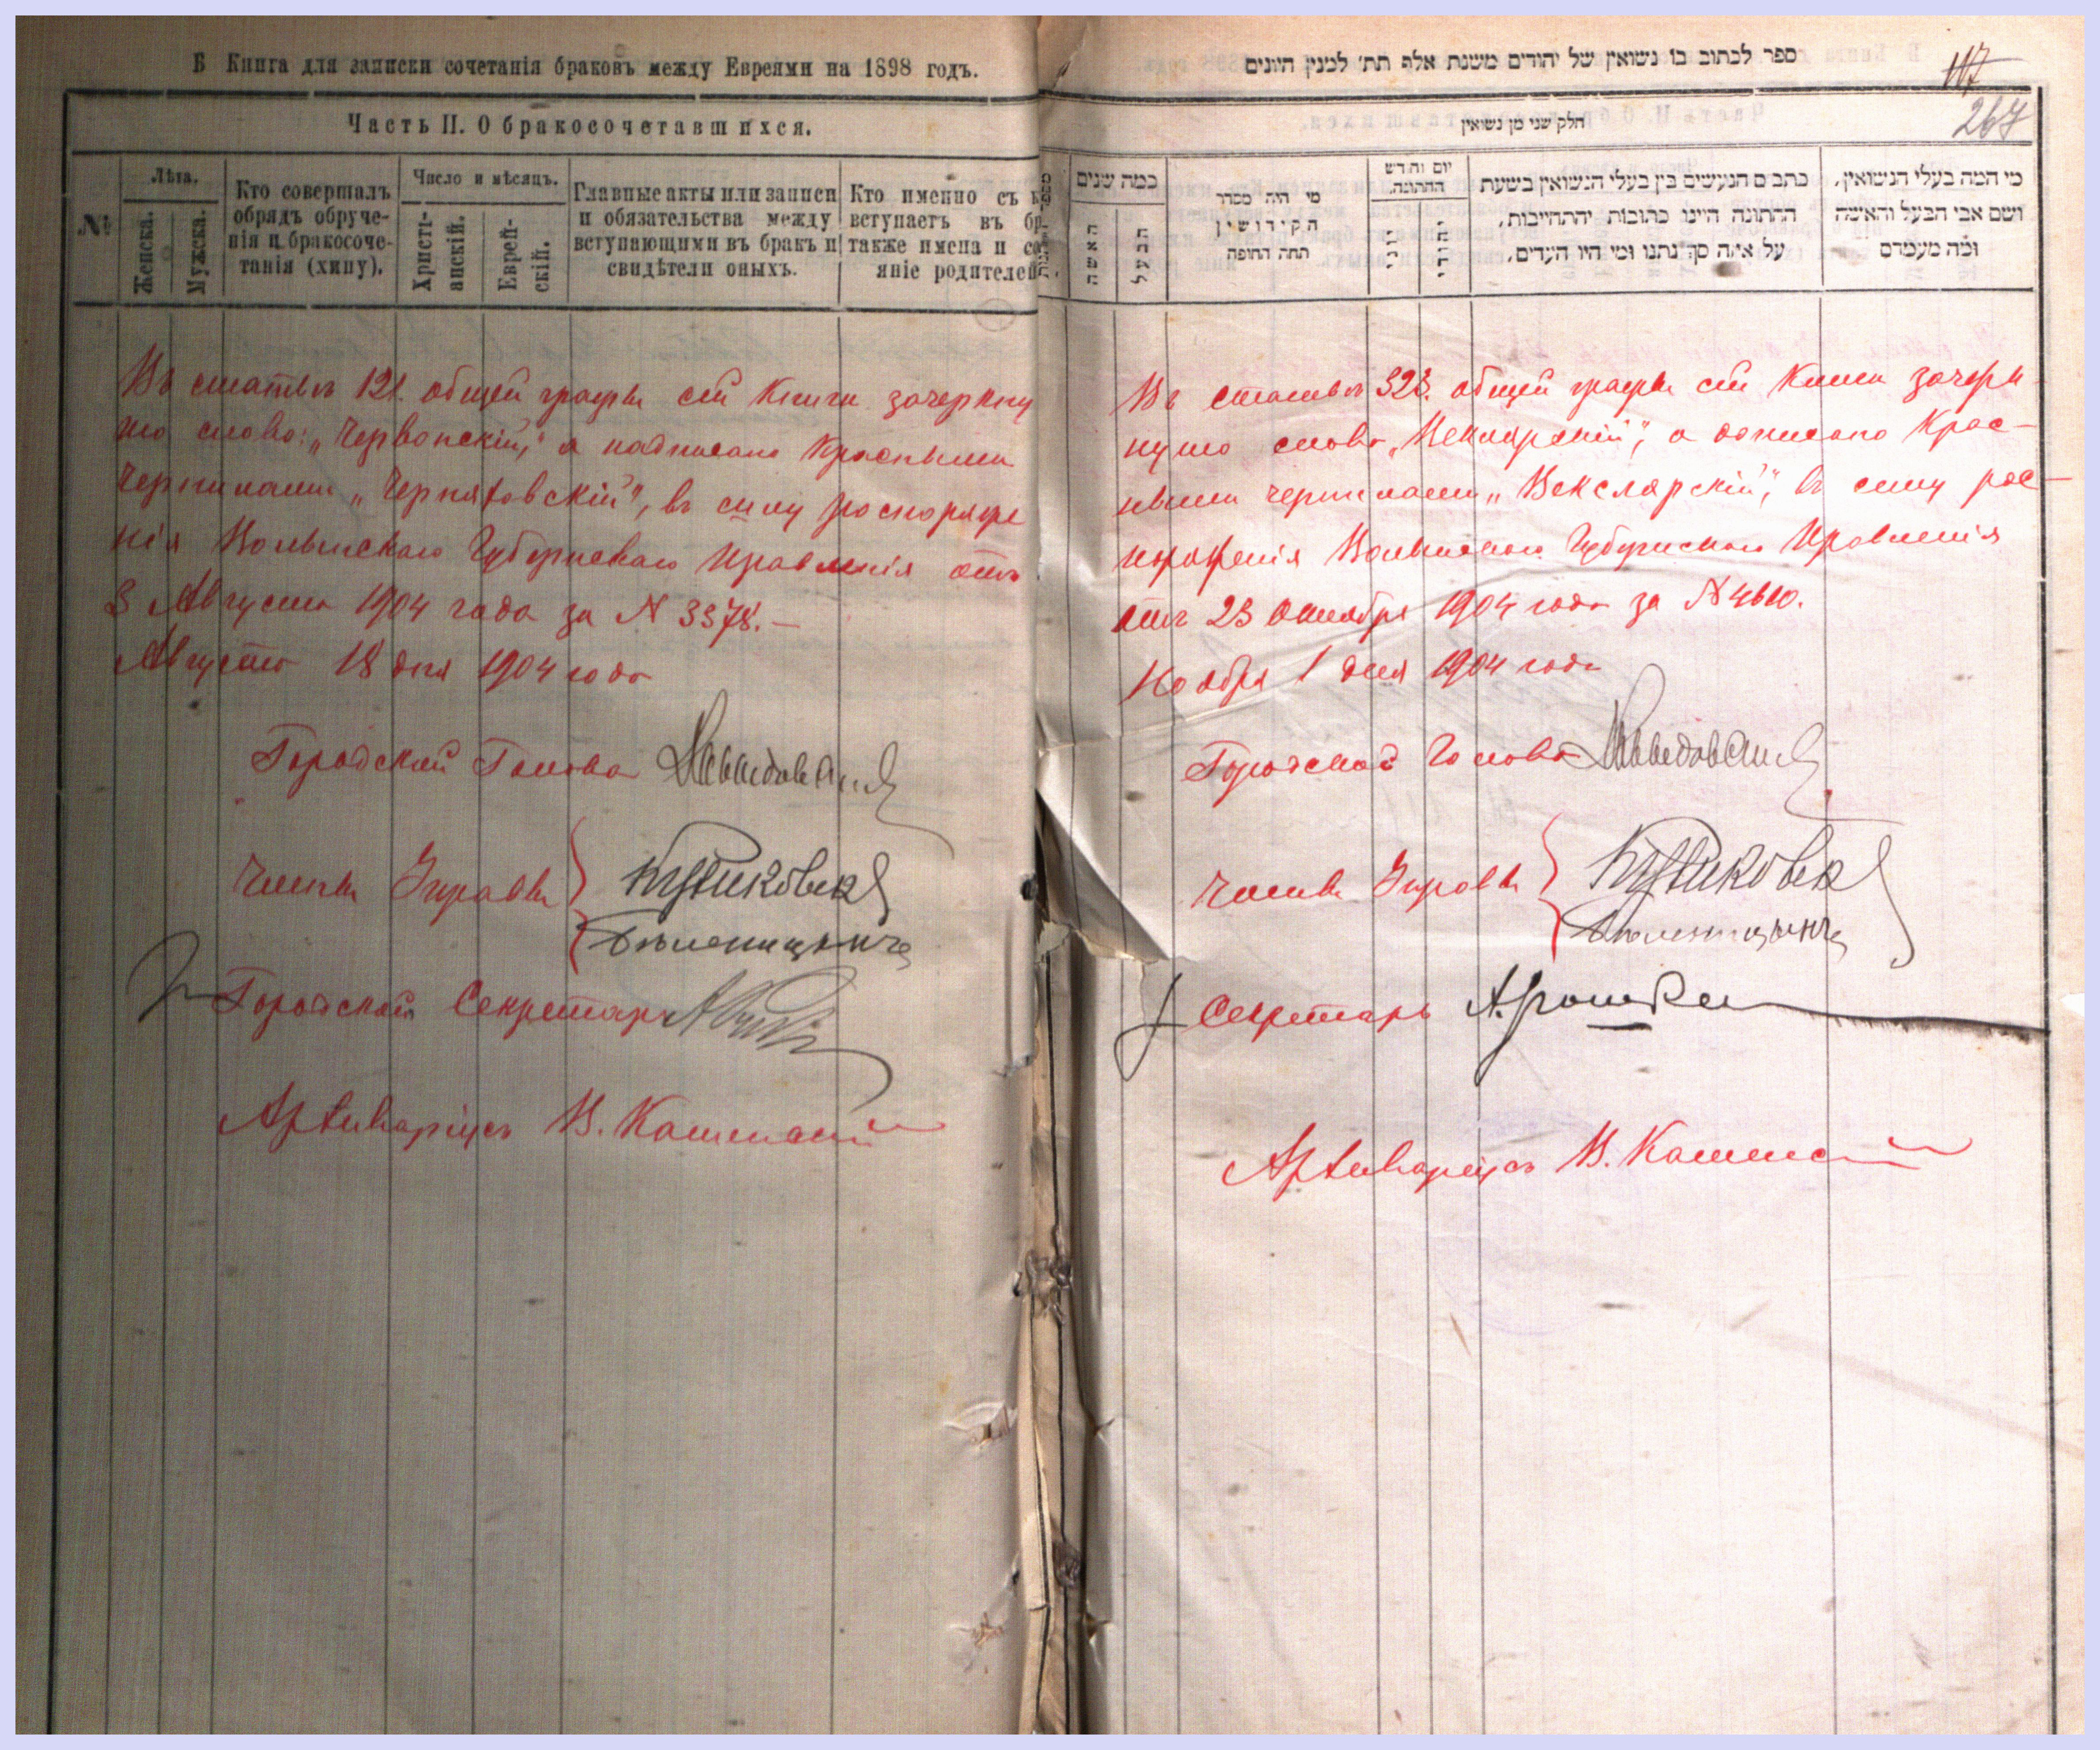 Б Книга для записки сочетанія браковъ между Евреями на 1898 годъ.
Часть II. О бракосочетавшихся.
№
Лѣта.
Женска.
Мужска.
Кто совершалъ
обрядъ обруче-
нія и бракосоче-
танія (хипу).
Число и мѣсяцъ.
Христі-
анскій.
Еврей-
скій.
Главные акты или записи
и обязательства между
вступающими въ бракъ и
свидѣтели оныхъ.
Кто именно съ к
вступаетъ въ бр
также имена и со
яніе родителей
Въ статьѣ 121. общей графы сей Книги зачеркну
то слово: „Червонскій", а надписано Красными
Чернилами „Черняховскій", въ силу распоряже
нія Волынскаго Губернскаго Правленія отъ
3 Августа 1904 года за N 3378.—
Августа 18 дня 1904 года
Городской Голова
Члены Управы
Городской Секретарь
Архиваріусъ В.
ספר לכתוב בו נשואין של יהודים משנת אלף תת׳ למנין היונים
117
267
חלק שני מן נשואין
כמה שנים
האשה
הבעל
מי היה מסדר
הקידושין
תחת החופה
יום וחדש
החתונה.
כתבים הנעשים בין בעלי הנשואין בשעת
החתונה היינו כתובות והתחייבות,
על איזה סך נתנו ומי היו העדים.
מי המה בעלי הנשואין,
ושם אבי הבעל והאשה
ומה מעמדם
Въ статьѣ 323. общей графы сей Книги зачерк-
нуто слово „Веклярскій", а дописано Крас-
ными чернилами „Векслярскій", въ силу рас-
поряженія Волынскаго Губернскаго Правленія
отъ 23 Октября 1904 года за N 4610.
Ноября 1 дня 1904 года
Городской Голова
Члены Управы
Секретарь
Архиваріусъ В.